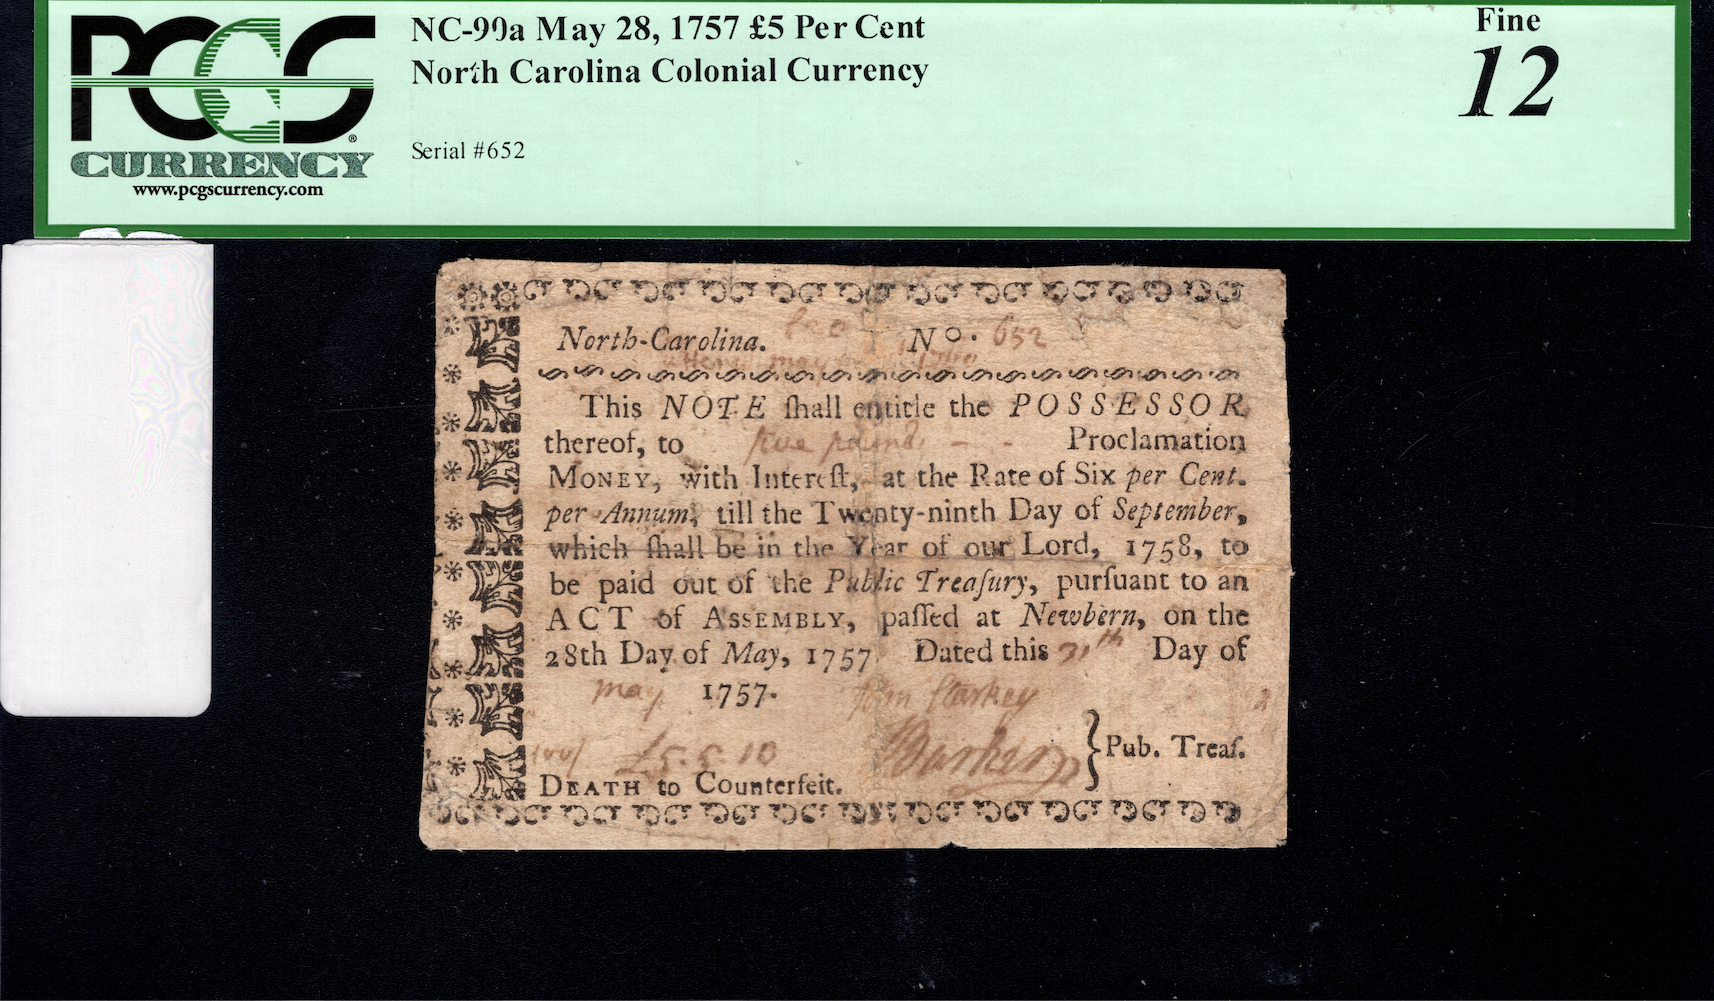 NC-99a May 28, 1757 £5 Per Cent
North Carolina Colonial Currency
Serial #652
Fine
12
PCGS
®
CURRENCY
www.pcgscurrency.com
North-Carolina. No. 652
This NOTE ſhall entitle the POSSESSOR
thereof, to five pounds - - Proclamation
MONEY, with Intereſt, at the Rate of Six per Cent.
per Annum, till the Twenty-ninth Day of September,
which ſhall be in the Year of our Lord, 1758, to
be paid out of the Public Treaſury, purſuant to an
ACT of ASSEMBLY, paſſed at Newbern, on the
28th Day of May, 1757 Dated this 31th Day of
may 1757. John Starkey
£5.5.10 } Pub. Treaſ.
DEATH to Counterfeit.